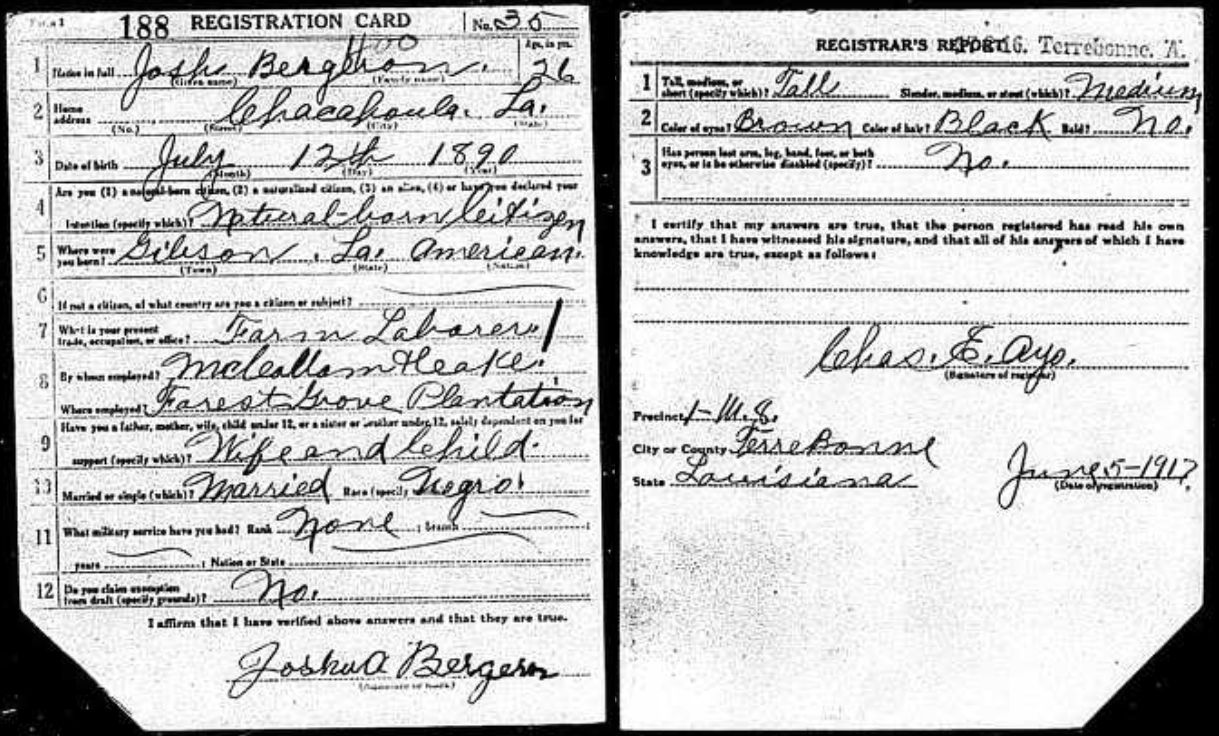 Form 1 188 REGISTRATION CARD No. 35
Age, in yrs.
1 Name in full Josh Bergeron. 26
(Given name) (Family name)
2 Home address Chacahoula. La.
(No.) (Street) (City) (State)
3 Date of birth July 12th 1890
(Month) (Day) (Year)
Are you (1) a natural-born citizen, (2) a naturalized citizen, (3) an alien, (4) or have you declared your
4 intention (specify which)? Natural-born Citizen
5 Where were you born? Gibson, La. American.
(Town) (State) (Nation)
6 If not a citizen, of what country are you a citizen or subject?
7 What is your present trade, occupation, or office? Farm Laborer
8 By whom employed?
Where employed? Forest Grove Plantation
Have you a father, mother, wife, child under 12, or a sister or brother under 12, solely dependent on you for
9 support (specify which)? Wife and Child.
Married or single (which)? Married Race (specify which)? Negro
11 What military service have you had? Rank None ; branch ;
years ; Nation or State
12 Do you claim exemption from draft (specify grounds)? No.
I affirm that I have verified above answers and that they are true.
Joshua Bergeron
REGISTRAR'S REPORT 16. Terrebonne. A.
1 Tall, medium, or short (specify which)? Tall Slender, medium, or stout (which)? Medium
2 Color of eyes? Brown Color of hair? Black Bald? No.
3 Has person lost arm, leg, hand, foot, or both eyes, or is he otherwise disabled (specify)? No.
I certify that my answers are true, that the person registered has read his own
answers, that I have witnessed his signature, and that all of his answers of which I have
knowledge are true, except as follows:
Chas. E. Ayo.
(Signature of registrar)
Precinct 1-W. 8.
City or County TerreBonne
State Louisiana June 5-1917
(Date of registration)